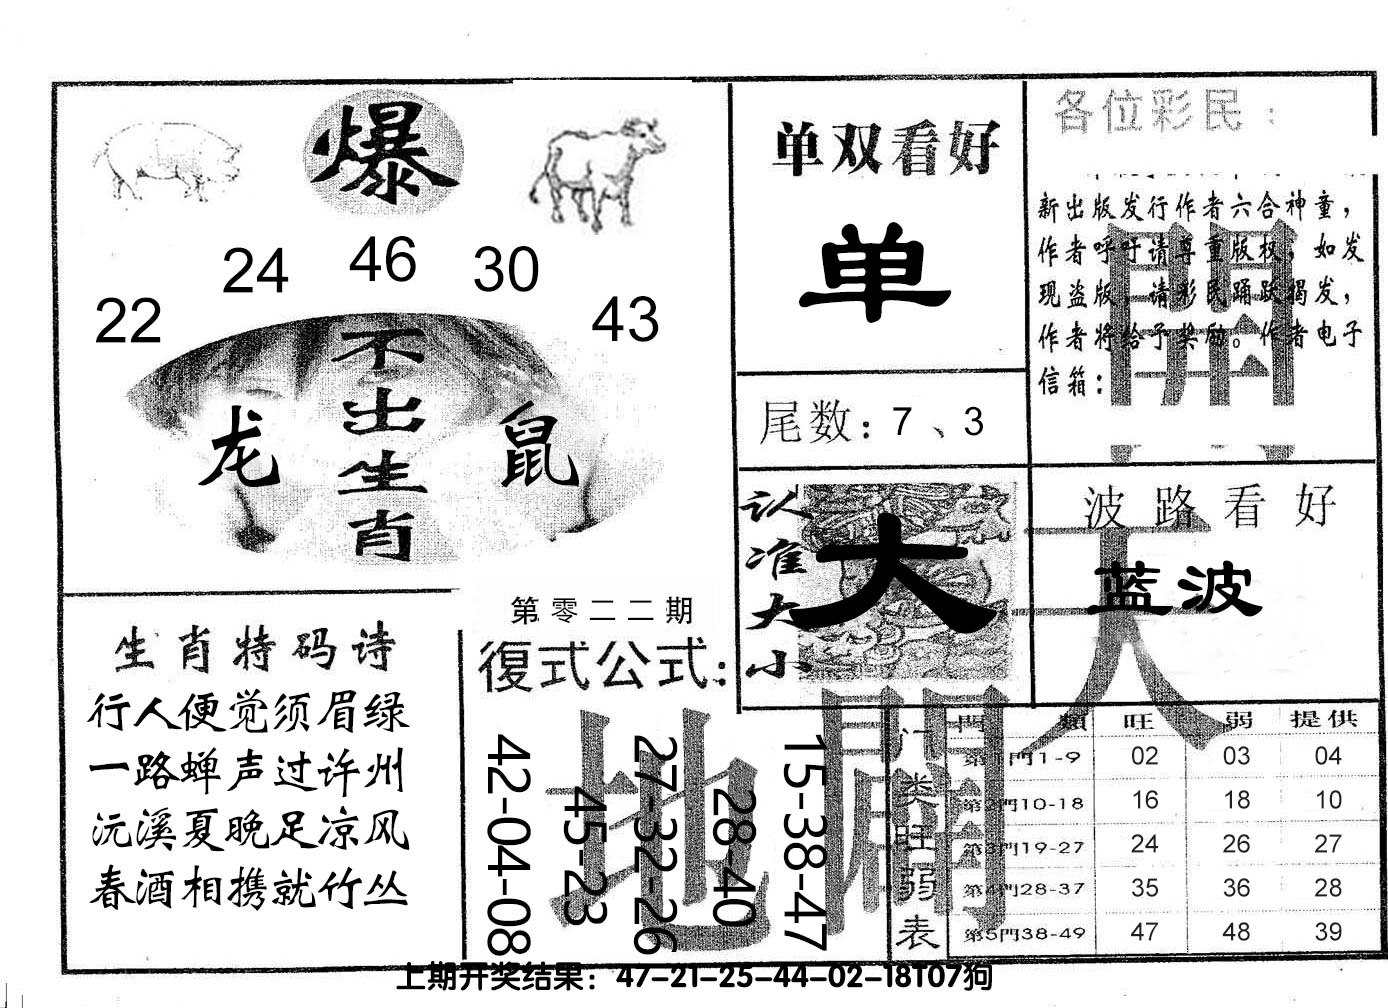 爆
24 46 30
22 43
不出生肖
龙 鼠
单双看好
单
尾数：7、3
各位彩民：
新出版发行作者六合神童，
作者呼吁请尊重版权，如发
现盗版，请彩民踊跃揭发，
作者将给予奖励。作者电子
信箱：
認准大小
大
波路看好
蓝波
生肖特码诗
行人便觉须眉绿
一路蝉声过许州
沅溪夏晚足凉风
春酒相携就竹丛
第零二二期
復式公式：
42-04-08
45-23
27-32-26
28-40
15-38-47
天
地
開
門类旺弱表
門類 旺 弱 提供
第1門1-9 02 03 04
第2門10-18 16 18 10
第3門19-27 24 26 27
第4門28-37 35 36 28
第5門38-49 47 48 39
上期开奖结果：47-21-25-44-02-18T07狗